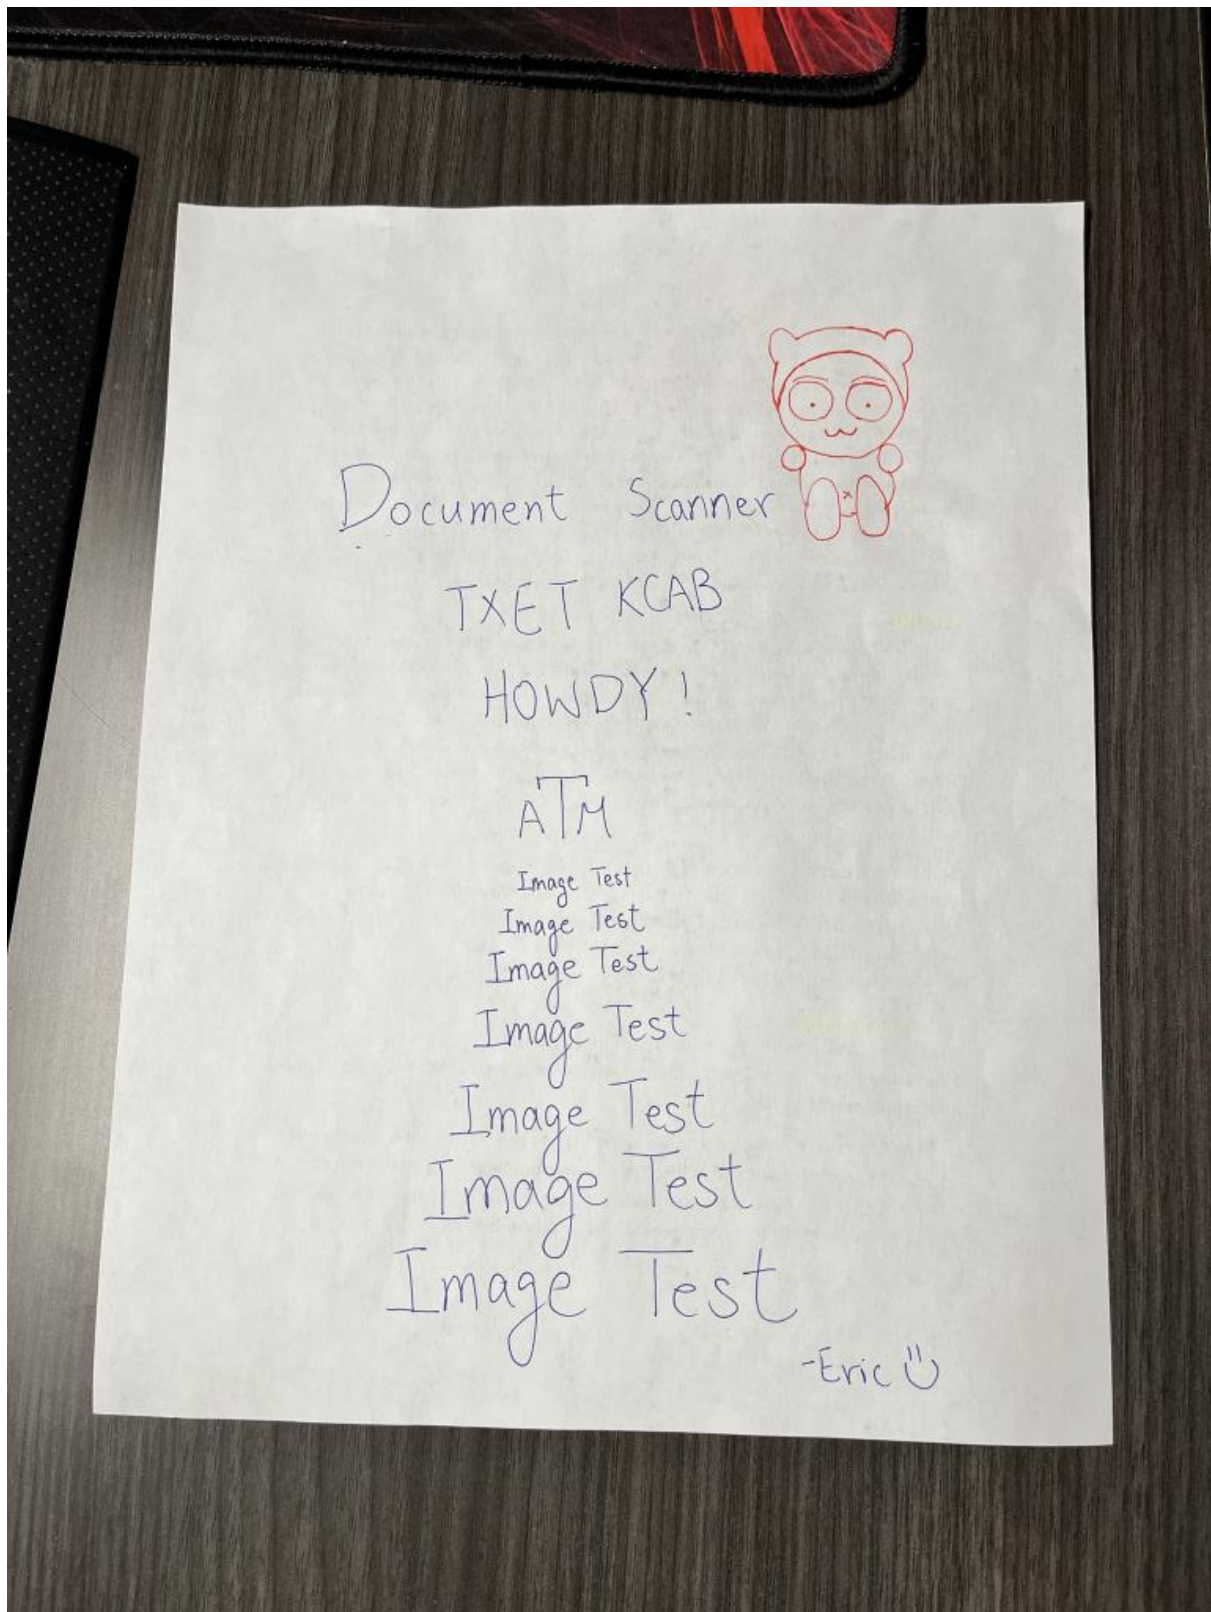 Document Scanner
TXET KCAB
HOWDY!
ATM
Image Test
Image Test
Image Test
Image Test
Image Test
Image Test
Image Test
-Eric